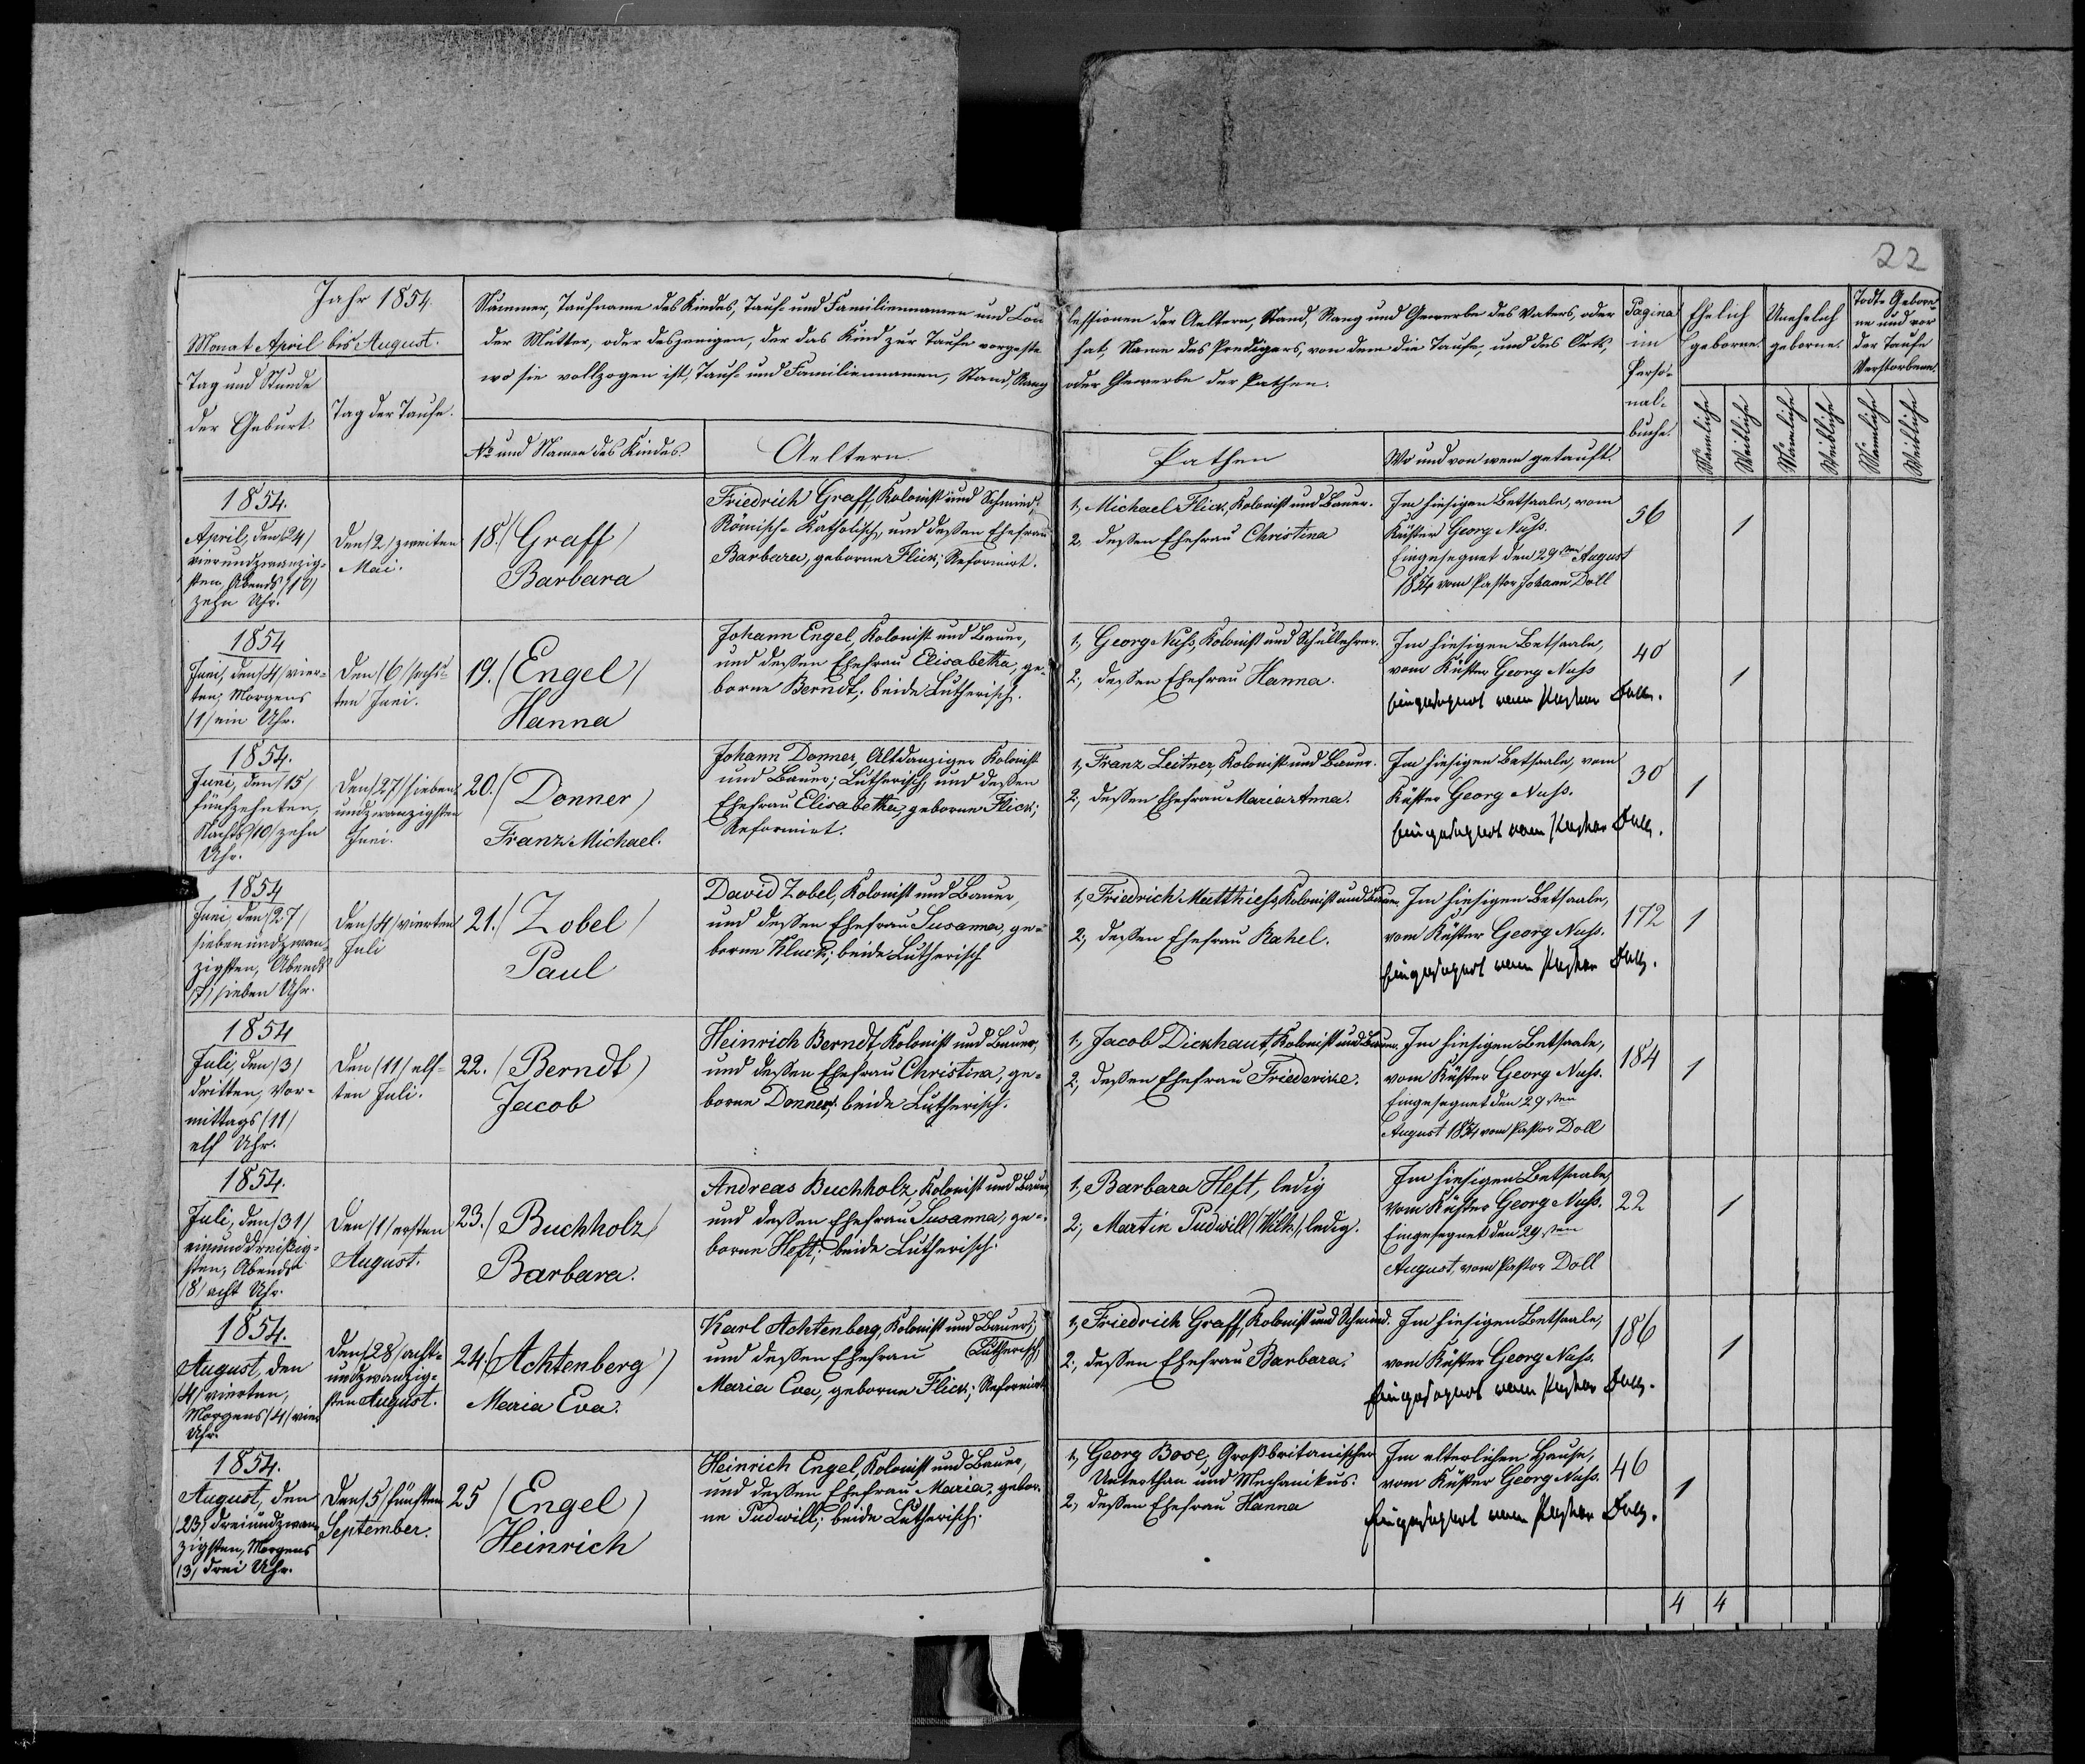 22
Jahr 1854.
Monat April bis August.
Tag und Stunde
der Geburt.
Tag der Taufe.
Nummer, Taufname des Kindes, Tauf- und Familiennamen und Con
der Mutter, oder desjenigen, der das Kind zur Taufe vorgeste
wo sie vollzogen ist, Tauf- und Familiennamen, Stand, Rang
No und Namen des Kindes.
Aeltern.
fessionen der Aeltern, Stand, Rang und Gewerbe des Vaters, oder
hat, Name des Predigers, von dem die Taufe, und des Orts,
oder Gewerbe der Pathen.
Pathen
Wo und von wem getauft.
Pagina
im
Perso-
nal-
buche.
Ehelich
geborne.
Unehelich
geborne.
Todt-Gebor-
ne und vor
der Taufe
Verstorbene.
Männliche
Weibliche
Männliche
Weibliche
Männliche
Weibliche
1854.
April, den /24/
vierundzwanzig-
sten, Abends /10/
zehn Uhr.
Den /2/ zweiten
Mai.
18. /Graff/
Barbara
Friedrich Graff, Kolonist und Schmied,
Römisch-Katholisch, und dessen Ehefrau
Barbara, geborne Flick; Reformirt.
1, Michael Flick, Kolonist und Bauer.
2, dessen Ehefrau Christina
Im hiesigen Betsaale, vom
Küster Georg Nuss.
Eingesegnet den 29sten August
1854 vom Pastor Johann Doll
56
1
1854
Juni, den /4/ vier-
ten, Morgens
/1/ ein Uhr.
Den /6/ sechs-
ten Juni.
19. /Engel/
Hanna
Johann Engel, Kolonist und Bauer,
und dessen Ehefrau Elisabetha, ge-
borne Berndt; beide Lutherisch.
1, Georg Nuss, Kolonist und Schullehrer.
2, dessen Ehefrau Hanna.
Im hiesigen Betsaale,
vom Küster Georg Nuss
Eingesegnet vom Pastor Doll.
40
1
1854.
Juni, den /15/
fünfzehnten,
Nachts /10/ zehn
Uhr.
Den /27/ sieben-
undzwanzigsten
Juni.
20. /Donner/
Franz Michael.
Johann Donner, Altdanziger Kolonist
und Bauer; Lutherisch, und dessen
Ehefrau Elisabetha, geborne Flick;
Reformirt.
1, Franz Leitner, Kolonist und Bauer.
2, dessen Ehefrau Maria Anna.
Im hiesigen Betsaale, vom
Küster Georg Nuss.
Eingesegnet vom Pastor Doll.
30
1
1854
Juni, den /27/
siebenundzwan-
zigsten, Abends
/7/ sieben Uhr.
Den /4/ vierten
Juli
21. /Zobel/
Paul
David Zobel, Kolonist und Bauer,
und dessen Ehefrau Susanna, ge-
borne Kluck; beide Lutherisch
1, Friedrich Matthiess, Kolonist und Bauer.
2, dessen Ehefrau Rahel.
Im hiesigen Betsaale,
vom Küster Georg Nuss.
Eingesegnet vom Pastor Doll.
172
1
1854
Juli, den /3/
dritten, Vor-
mittags /11/
elf Uhr.
Den /11/ elf-
ten Juli.
22. /Berndt/
Jacob
Heinrich Berndt, Kolonist und Bauer,
und dessen Ehefrau Christina, ge-
borne Donner; beide Lutherisch.
1, Jacob Dickhaut, Kolonist und Bauer.
2, dessen Ehefrau Friedericke.
Im hiesigen Betsaale,
vom Küster Georg Nuss.
Eingesegnet den 29sten
August 1854 vom Pastor Doll
184
1
1854.
Juli, den /31/
einunddreissig-
sten, Abends
/8/ acht Uhr.
Den /1/ ersten
August.
23. /Buchholz/
Barbara.
Andreas Buchholz, Kolonist und Bauer,
und dessen Ehefrau Susanna, ge-
borne Heft; beide Lutherisch.
1, Barbara Heft, ledig
2, Martin Pudwill /Wilh/, ledig.
Im hiesigen Betsaale,
vom Küster Georg Nuss.
Eingesegnet den 29sten
August, vom Pastor Doll
22
1
1854.
August, den
/4/ vierten,
Morgens /4/ vier
Uhr.
Den /28/ acht-
undzwanzig-
sten August.
24. /Achtenberg/
Maria Eva.
Karl Achtenberg, Kolonist und Bauer;
und dessen Ehefrau (Lutherisch,
Maria Eva, geborne Flick; Reformirt
1, Friedrich Graff, Kolonist und Schmied.
2, dessen Ehefrau Barbara.
Im hiesigen Betsaale,
vom Küster Georg Nuss.
Eingesegnet vom Pastor Doll.
186
1
1854.
August, den
/23/ dreiundzwan-
zigsten, Morgens
/3/ drei Uhr.
Den /5/ fünften
September.
25 /Engel/
Heinrich
Heinrich Engel, Kolonist und Bauer,
und dessen Ehefrau Maria, gebor-
ne Pudwill; beide Lutherisch.
1, Georg Bose, Grossbritanischer
Unterthan und Mechanikus.
2, dessen Ehefrau Hanna
Im elterlichen Hause,
vom Küster Georg Nuss.
Eingesegnet vom Pastor Doll.
46
1
4 4